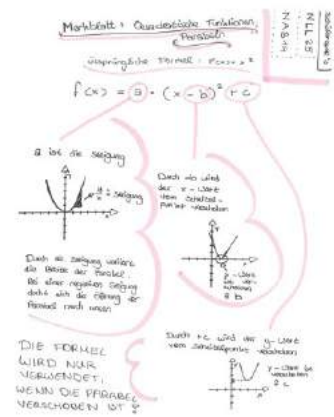 Merkblatt: Quadratische Funktionen,
Parabeln
ursprüngliche Formel: f(x) = x²
f(x) = a · (x - b)² + c
a ist die Steigung
= Steigung
Durch die Steigung variiert
die Breite der Parabel.
Bei einer negativen Steigung
dreht sich die Öffnung der
Parabel nach unten
Durch -b wird
der x-Wert
vom Scheitel-
punkt verschoben
x-Wert
ist ver-
schoben
Durch +c wird der y-Wert
vom Scheitelpunkt verschoben
y-Wert ist
verschoben
DIE FORMEL
WIRD NUR
VERWENDET,
WENN DIE PARABEL
VERSCHOBEN IST